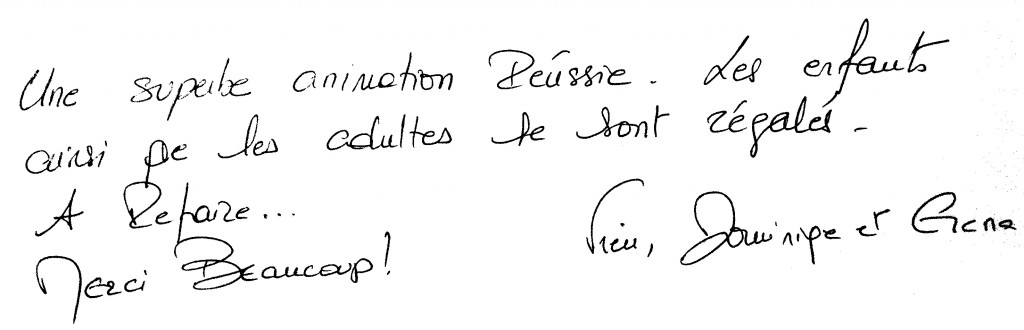 Une superbe animation Réussie. Les enfants
ainsi que les adultes se sont régalés.
A Refaire...
Merci Beaucoup!
Dominique et